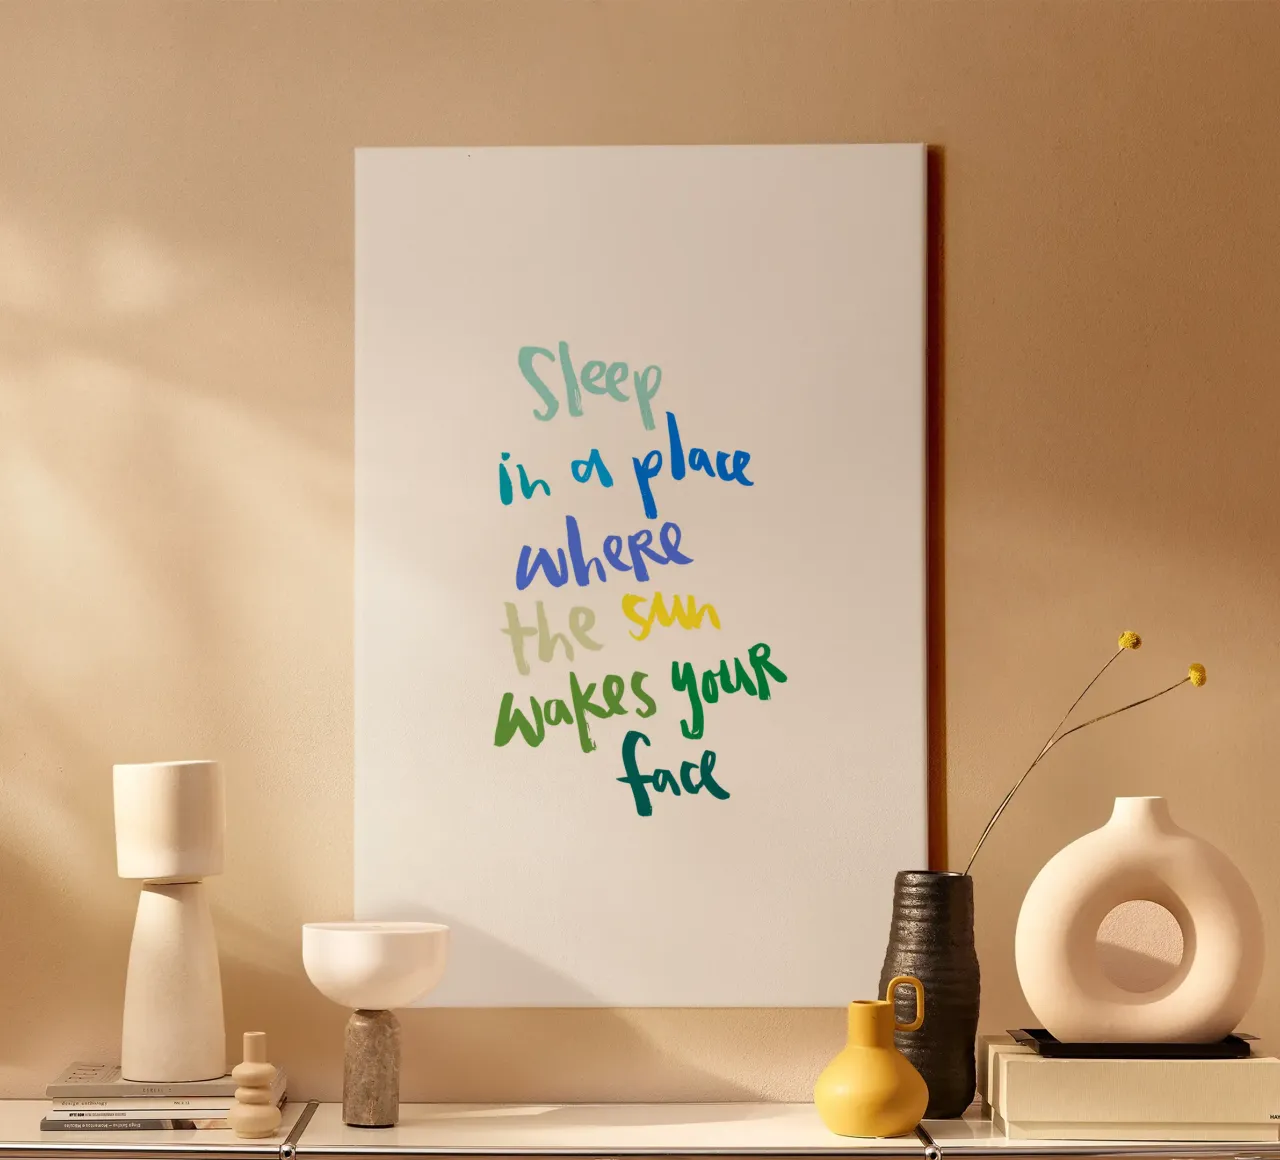 Sleep
in a place
where
the sun
wakes your
face
design anthology